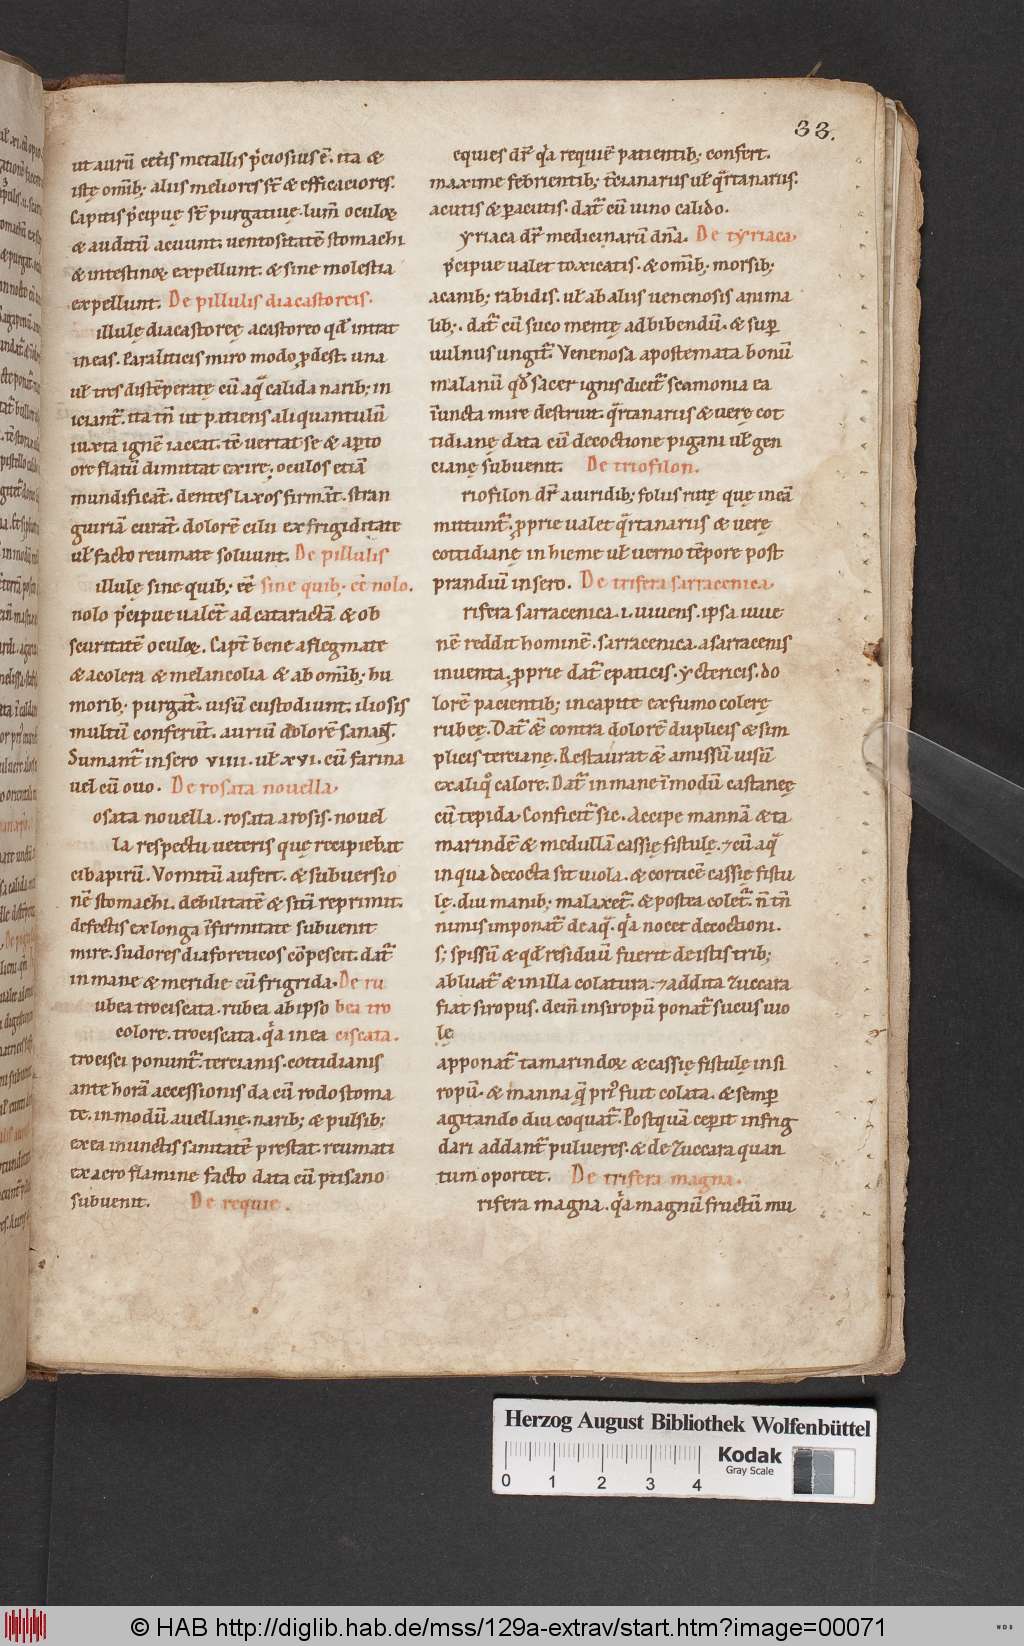 33.
ut aurū cet̄is metallis p̄ciosius ē. ita &
istę omīb; aliis meliores st̄ & efficaciores.
Capitis p̄cipuę st̄ purgatiuę. lum̄ oculoꝝ
& auditū acuunt. uentositatē stomachi
& intestinoꝝ expellunt. & sine molestia
expellunt. De pillulis diacastoreis.
illulę diacastoreę. a castoreo qđ intrat
in eas. Paraliticis miro modo ꝓdest. una
uł tres distēperatę cū aq̄ calida narib; in
iciant̄. ita tn̄ ut patiens aliquantulū
iuxta ignē iaceat. tē uertat se & aꝑto
ore flatū dimittat exire. oculos etiā
mundificāt. dentes laxos firmāt. stran
guiriā curāt. dolorē cilii ex frigiditate
uł facto reumate soluunt. De pillulis
illulę sine quib; eē sine quib; eē nolo.
nolo p̄cipue ualēt ad cataractā & ob
scuritatē oculoꝝ. Capt̄ bene a flegmate
& a colera & melancolia & ab omīb; hu
morib; purgāt. uisū custodiunt. iliosis
multū conferūt. auriū dolorē sanant̄.
Sumant̄ in sero viiii. uł xvi. cū farina
uel cū ouo. De rosata nouella.
osata nouella. rosata a rosis. nouel
la respectu ueteris quę recipiebat
cibapirū. Vomitū aufert. & subuersio
nē stomachi. debilitatē & sitī reprimit.
defectis ex longa īfirmitate subuenit
mire. sudores diaforeticos cōpescit. dat̄
in mane & meridie cū frigrida. De ru
ubea trociscata. rubea ab ipso bea tro
colore. trociscata. q̄a in ea ciscata.
trocisci ponunt̄. tercianis. cottidianis
ante horā accessionis da cū rodostoma
te. in modū auellanę. narib; & pulsib;
ex ea inunctis sanitatē prestat. reumati
ex aero flamine facto data cū ptisano
subuenit. De requie.
equies dr̄ q̄a requiē patientib; confert.
maxime febrientib; t̄cianariis uł q̄rtanariis.
acutis & ꝑacutis. dat̄ cū uino calido.
yriaca dr̄ medicinarū dn̄a. De tyriaca.
p̄cipue ualet toxicatis. & omīb; morsib;
a canib; rabidis. uł ab aliis uenenosis anima
lib;. dat̄ cū suco mentę ad bibendū. & suꝑ
uulnus ungit̄. Venenosa apostemata bonū
malanū qđ sacer ignis dicit̄ scamonia ea
īuncta mire destruit. q̄rtanariis & uerę cot
tidianę data cū decoctione pigani uł gen
cianę subuenit. De triofilon.
riofilon dr̄ a uiridib; foliis rutę quę in eā
mittunt̄. ꝓprie ualet q̄rtanariis & uerę
cottidianę in hieme uł uerno tēpore post
prandiū in sero. De trifera sarracenica
rifera sarracenica. i. iuuens. ipsa iuue
nē reddit hominē. Sarracenica. a sarracenis
inuenta. ꝓprie dat̄ epaticis. yctericis. do
lorē pacientib; in capite ex fumo colerę
rubeę. Dat̄ &̄ contra dolorē duplicis & sim
plicis tercianę. Restaurat &̄ amissū uisū
ex aliqo calore. Dat̄ in mane ī modū castaneę
cū tepida. Conficit̄ sic. Accipe mannā & ta
marindē & medullā cassię fistulę. & cū aq̄
in qua decocta sit uiola. & corticē cassię fistu
lę. diu manib; malaxet̄. & postea colet̄. n̄ tn̄
nimis imponat̄ de aq̄. q̄a nocet decoctioni.
s; spissū & qđ residuū fuerit de istis trib;
abluat̄ & in illa colatura. & addita zuccara
fiat siropus. deīn in siropū ponat̄ sucus uio
lę
apponat̄ tamarindoꝝ & cassię fistulę in si
ropū. & manna q̄ pri9 fuit colata. & semꝑ
agitando diu coquat̄. Postquā ceperit infrig
dari addant̄ pulueres. & de zuccara quan
tum oportet. De trifera magna.
rifera magna. q̄a magnū fructū mu
Herzog August Bibliothek Wolfenbüttel
0 1 2 3 4
Kodak
Gray Scale
© HAB http://diglib.hab.de/mss/129a-extrav/start.htm?image=00071